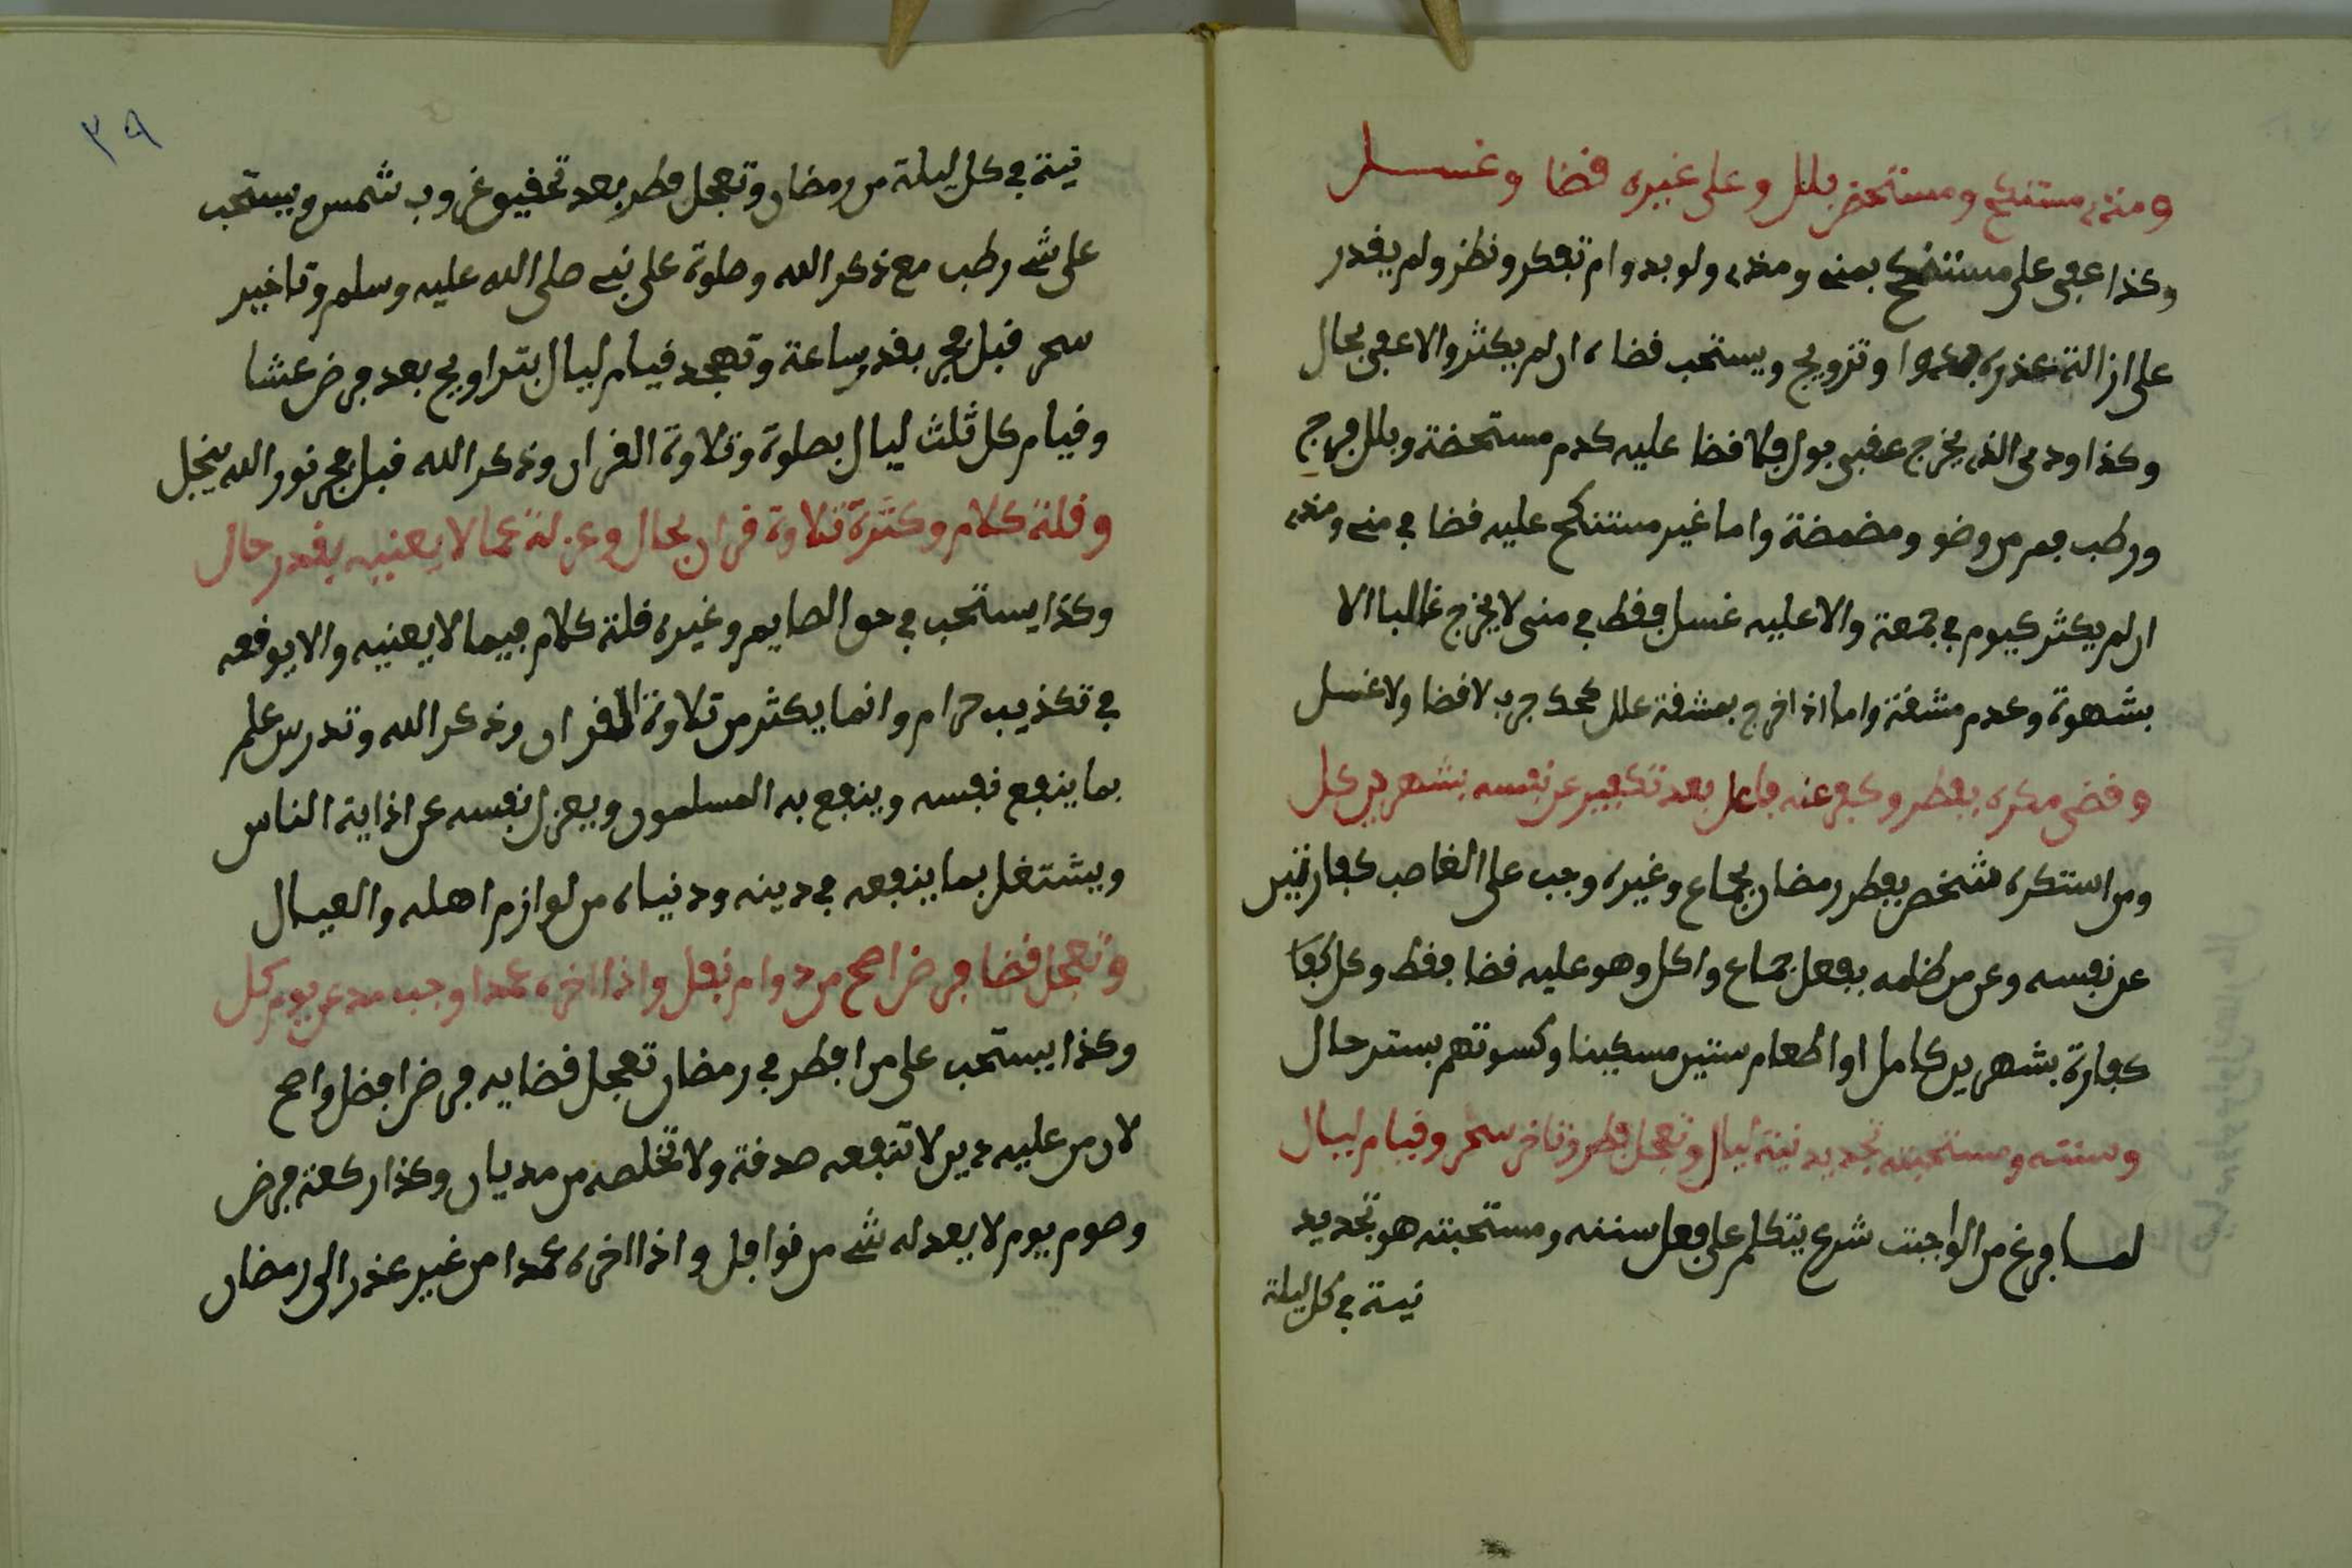 ومذي مستنكح ومستحض بلل وعلى غيره قضا وغسل
وكذا عفى على مستنكح بمني ومذي ولو بدوام تفكر ونظر ولم يقدر
على ازالة عذره او تزويج ويستحب قضاه ان لم يكثر والا عفى بحال
وكذا ودي الذي يخرج عقبى بول فلا قضا عليه كدم مستحضة وبلل فرج
ورطب فم من وضو ومضمضة واما غير مستنكح عليه قضا في مني ومذي
ان لم يكثر كيوم في جمعة والا عليه غسل فقط في منى لا يخرج غالبا الا
بشهوة وعدم مشقة واما اذا خرج بمشقة علل كحك جرب لا قضا ولا غسل
وقضى مكره بفطر وكفر عنه فاعل بعد تكفير عن نفسه بشهرين كل
ومن استكره شخص بفطر رمضان بجماع وغيره وجب على الغاصب كفارتين
عن نفسه وعن من ظلمه بفعل جماع واكل وهو عليه قضا فقط وكل كفا
كفارة بشهرين كامل او اطعام ستين مسكينا وكسوتهم بستر حال
وسنته ومستحبته تجديد نية ليال وتعجل فطر وتاخر سحر وقيام ليال
لما فرغ من الواجبت شرع يتكلم على فعل سننه ومستحبته هو تجديد
نية في كل ليلة
٣٩
نية في كل ليلة من رمضان وتعجل فطر بعد تحقيق غروب شمس ويستحب
على شي رطب مع ذكر الله وصلوة على نبي صلى الله عليه وسلم وتاخير
سحر قبل فجر بقدر ساعة وتهجد قيام ليال بتراويح بعد فرض عشا
وقيام كل ثلث ليال بصلوة وتلاوة القران وذكر الله قبل فجر نور الله ينجل
وقلة كلام وكثرة تلاوة قران بحال وعزلة عما لا يعنيه بقدر حال
وكذا يستحب في حق الصايم وغيره قلة كلام فيما لا يعنيه والا يوقعه
في تكذيب حرام وانما يكثر من تلاوة القران وذكر الله وتدرس علم
بما ينفع نفسه وينفع به المسلمون ويعزل نفسه عن اذاية الناس
ويشتغل بما ينفعه في دينه ودنياه من لوازم اهله والعيال
وتعجل قضا فرض اصح من دوام نفل واذا اخره عمدا وجب مد عن يوم كل
وكذا يستحب على من افطر في رمضان تعجل قضايه فرض افضل واصح
لان من عليه دين لا تنفعه صدقة ولا تخلصه من مديان وكذا ركعة فرض
وصوم يوم لا يعدله شي من نوافل واذا اخره عمدا من غير عذر الى رمضان